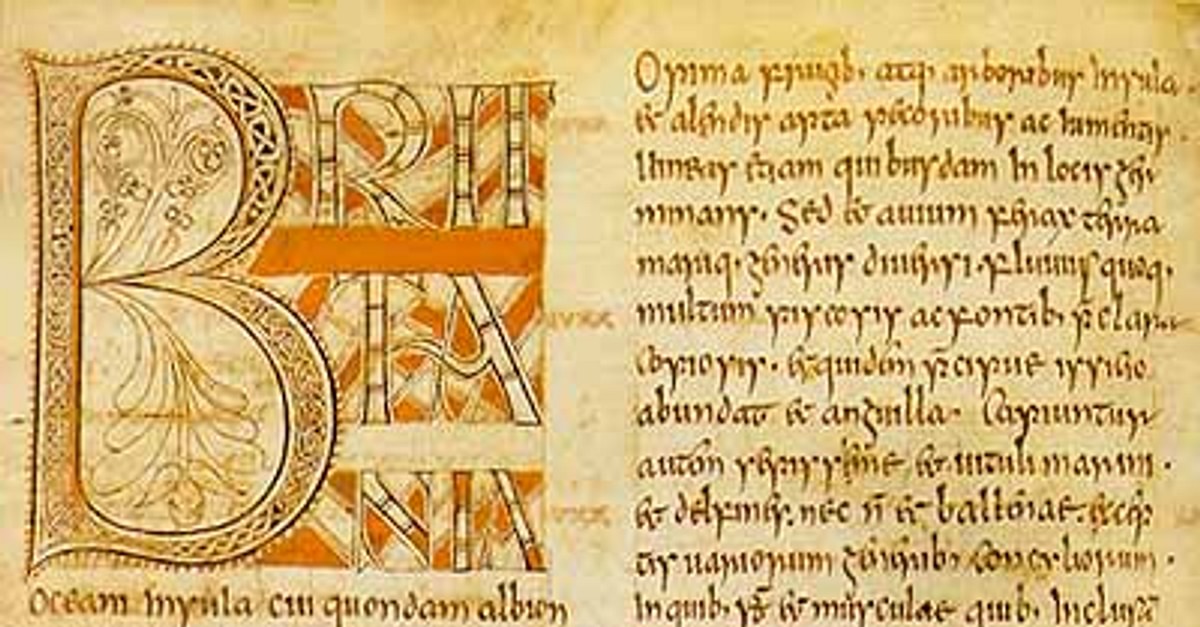 BRIT
TA
NIA
Oceani Insula cui quondam albion
Opima frugib. atq. arboribus Insula.
et alendis apta pecoribus ac Iumentis.
Uineas etiam quibusdam In locis ger
minans. Sed et auium ferax terra
mariq. generis diuersi. fluuiis quoq.
multum piscosis ac fontib. p̄claris
Copiosis. et quidem p̄cipue issicio
abundat et anguilla. Capiuntur
autem et uituli marini.
et delfines. nec n̄ et ballenae. excep
tis uariorum generib. Concyliorum.
In quib. s̄ et musculae quib. Inclusā